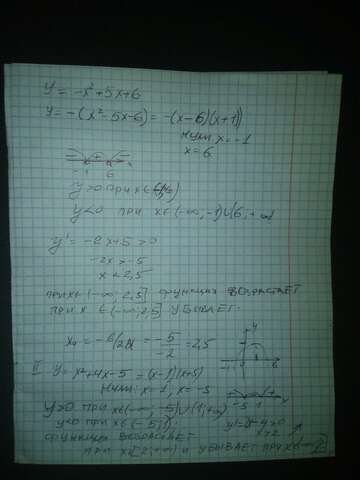 y = -x² + 5x + 6
y = -(x² - 5x - 6) = -(x - 6)(x + 1)
нули x = -1
x = 6
-1 6 x
y > 0 при x ∈
y < 0 при x ∈ (-∞, -1) ∪ (6; +∞)
y' = -2x + 5 > 0
-2x > -5
x < 2,5
при x ∈ (-∞; 2,5] функция возрастает
при x ∈ 2,5 убывает
= -5/-2 = 2,5
II y = x² + 4x - 5 = (x - 1)(x + 5)
нули: x = 1, x = -5
-5 1 x
y > 0 при x ∈ (-∞; -5) ∪ (1; +∞)
y < 0 при x ∈ (-5; 1)
функция возрастает
при x ∈ +∞) и убывает при x ∈